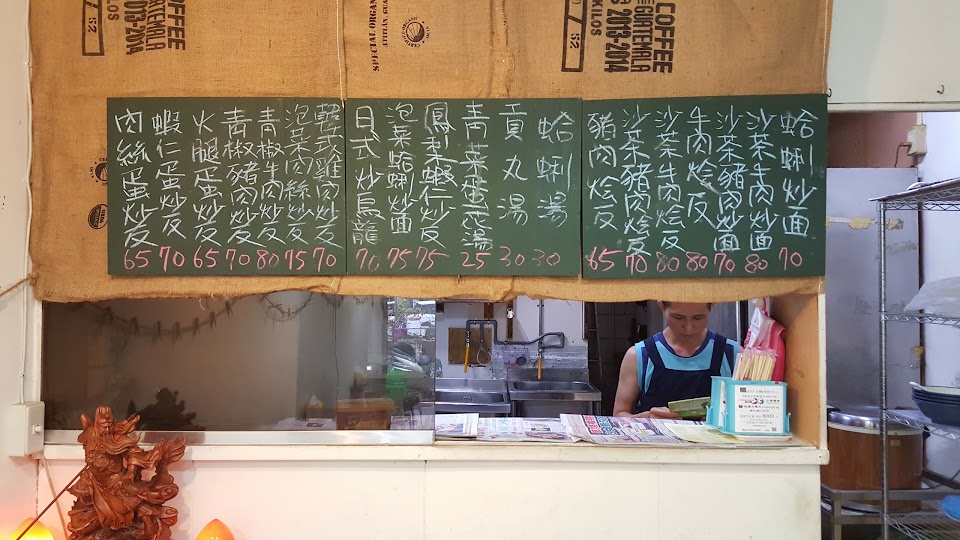 COFFEE
GUATEMALA
2013-2014
52
SPECIAL ORGANIC
COFFEE
DE GUATEMALA
2013-2014
KILOS
52
蛤蜊炒面 70
沙茶牛肉炒面 80
沙茶豬肉炒面 70
牛肉燴反 80
沙茶牛肉燴反 80
沙茶豬肉燴反 70
豬肉燴反 65
蛤蜊湯 30
貢丸湯 30
青菜蛋花湯 25
鳳梨蝦仁炒反 75
泡菜蛤蜊炒面 75
日式炒烏龍 70
韓式雞肉炒反 70
泡菜肉絲炒反 75
青椒牛肉炒反 80
青椒豬肉炒反 70
火腿蛋炒反 65
蝦仁蛋炒反 70
肉絲蛋炒反 65